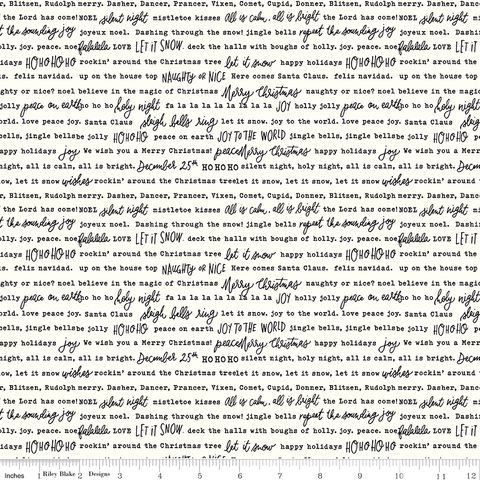 r, Blitzen, Rudolph merry. Dasher, Dancer, Prancer, Vixen, Comet, Cupid, Donner, Blitzen, Rudolph merry. Dasher, Dancer
the Lord has come! NOEL silent night mistletoe kisses All is calm, all is bright the Lord has come! NOEL silent night
repeat the sounding joy joyeux noel. Dashing through the snow! jingle bells repeat the sounding joy joyeux noel. Dashing
olly. joy. peace. noel falalala LOVE LET IT SNOW. deck the halls with boughs of holly. joy. peace. noel falalala LOVE LET IT SNOW
idays HOHOHOHO rockin' around the Christmas tree let it snow happy holidays HOHOHOHO rockin' around the
us. feliz navidad. up on the house top NAUGHTY OR NICE Here comes Santa Claus. feliz navidad. up on the house top
aughty or nice? noel believe in the magic of Christmas Merry Christmas naughty or nice? noel believe in the magic
holly jolly peace on earth ho ho holy night fa la la la la la la la la JOY holly jolly peace on earth ho ho holy night
world. love peace joy. Santa Claus sleigh bells ring let it come! joy to the world. love peace joy. Santa Claus sleigh
bells, jingle bells be jolly HOHOHO peace on earth JOY TO THE WORLD jingle bells, jingle bells be jolly HOHOHO
happy holidays joy We wish you a Merry Christmas! peace Merry Christmas happy holidays joy We wish you a Merry
night, all is calm, all is bright. December 25th HOHOHO silent night, holy night, all is calm, all is bright. December
ow, let it snow wishes rockin' around the Christmas tree let it snow, let it snow, let it snow wishes rockin' around the
r, Blitzen, Rudolph merry. Dasher, Dancer, Prancer, Vixen, Comet, Cupid, Donner, Blitzen, Rudolph merry. Dasher, Dancer
the Lord has come! NOEL silent night mistletoe kisses All is calm, all is bright the Lord has come! NOEL silent night
repeat the sounding joy joyeux noel. Dashing through the snow! jingle bells repeat the sounding joy joyeux noel. Dashing
olly. joy. peace. noel falalala LOVE LET IT SNOW. deck the halls with boughs of holly. joy. peace. noel falalala LOVE LET IT SNOW
idays HOHOHOHO rockin' around the Christmas tree let it snow happy holidays HOHOHOHO rockin' around the
us. feliz navidad. up on the house top NAUGHTY OR NICE Here comes Santa Claus. feliz navidad. up on the house top
aughty or nice? noel believe in the magic of Christmas Merry Christmas naughty or nice? noel believe in the magic
holly jolly peace on earth ho ho holy night fa la la la la la la la la JOY holly jolly peace on earth ho ho holy night
world. love peace joy. Santa Claus sleigh bells ring joy to the world. love peace joy. Santa Claus sleigh
bells, jingle bells be jolly HOHOHO peace on earth JOY TO THE WORLD jingle bells, jingle bells be jolly HOHOHO
happy holidays joy We wish you a Merry Christmas! peace Merry Christmas happy holidays joy We wish you a Merry
night, all is calm, all is bright. December 25th HOHOHO silent night, holy night, all is calm, all is bright. December
ow, let it snow wishes rockin' around the Christmas tree let it snow, let it snow, let it snow wishes rockin' around the
r, Blitzen, Rudolph merry. Dasher, Dancer, Prancer, Vixen, Comet, Cupid, Donner, Blitzen, Rudolph merry. Dasher, Dancer
the Lord has come! NOEL silent night mistletoe kisses All is calm, all is bright the Lord has come! NOEL silent night
repeat the sounding joy joyeux noel. Dashing through the snow! jingle bells repeat the sounding joy joyeux noel. Dashing
olly. joy. peace. noel falalala LOVE LET IT SNOW. deck the halls with boughs of holly. joy. peace. noel falalala LOVE LET IT SNOW
idays HOHOHOHO rockin' around the Christmas tree let it snow happy holidays HOHOHOHO rockin' around the
Inches 1 Riley Blake 2 Designs 3 4 5 6 7 8 9 10 11 12